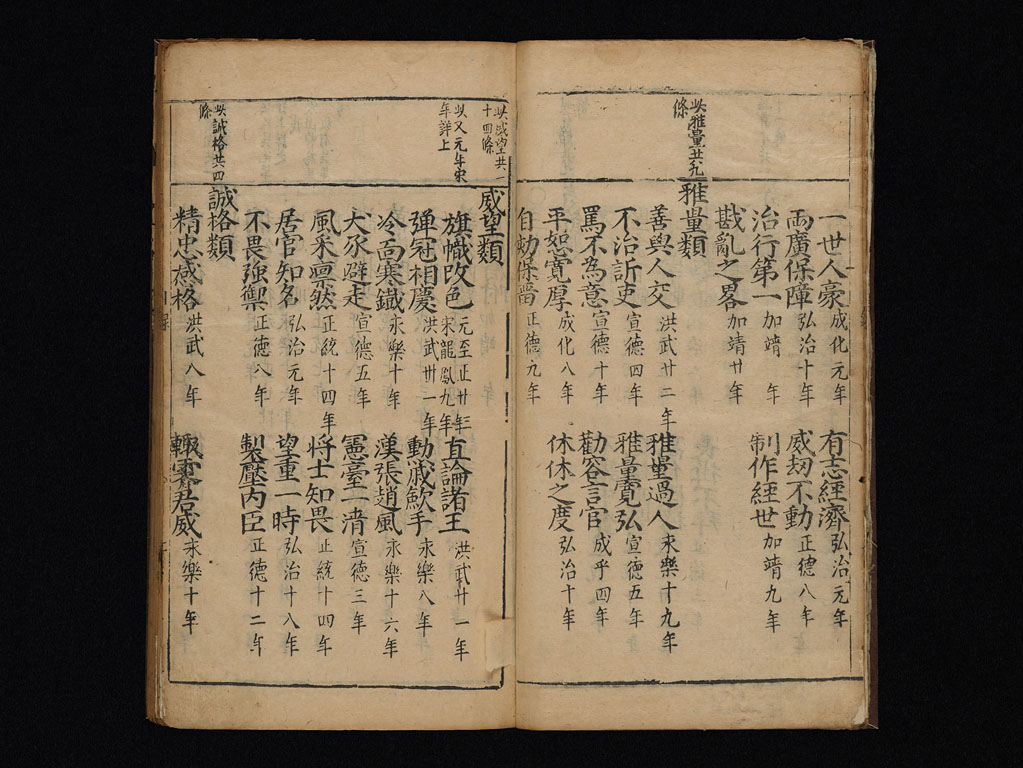 一世人豪成化元年 有志經濟弘治元年
兩廣保障弘治十年 威刼不動正德八年
治行第一加靖 年 制作經世加靖九年
戡亂之畧加靖廿年
此雅量共九
條
雅量類
善與人交洪武廿二年 雅量過人永樂十九年
不治訴吏宣德四年 雅量寬弘宣德五年
罵不為意宣德十年 勸容言官成乎四年
平恕寬厚成化八年 休休之度弘治十年
自劾保晋正德九年
此威望共一
十四條
威望類
此又元年宋
年詳上
旗幟改色元至正廿年宋龍鳳九年 直論諸王洪武廿一年
彈冠相慶洪武卅一年 動戚歛手永樂八年
冷面寒鐵永樂十年 漢張趙風永樂十六年
犬豕辟走宣德五年 憲臺一清宣德三年
風采凛然正統十四年 將士知畏正統十四年
居官知名弘治元年 望重一時弘治十八年
不畏強禦正德八年 製壓內臣正德十二年
此誠格共四
條
誠格類
精忠感格洪武八年 輙霽君威永樂十年